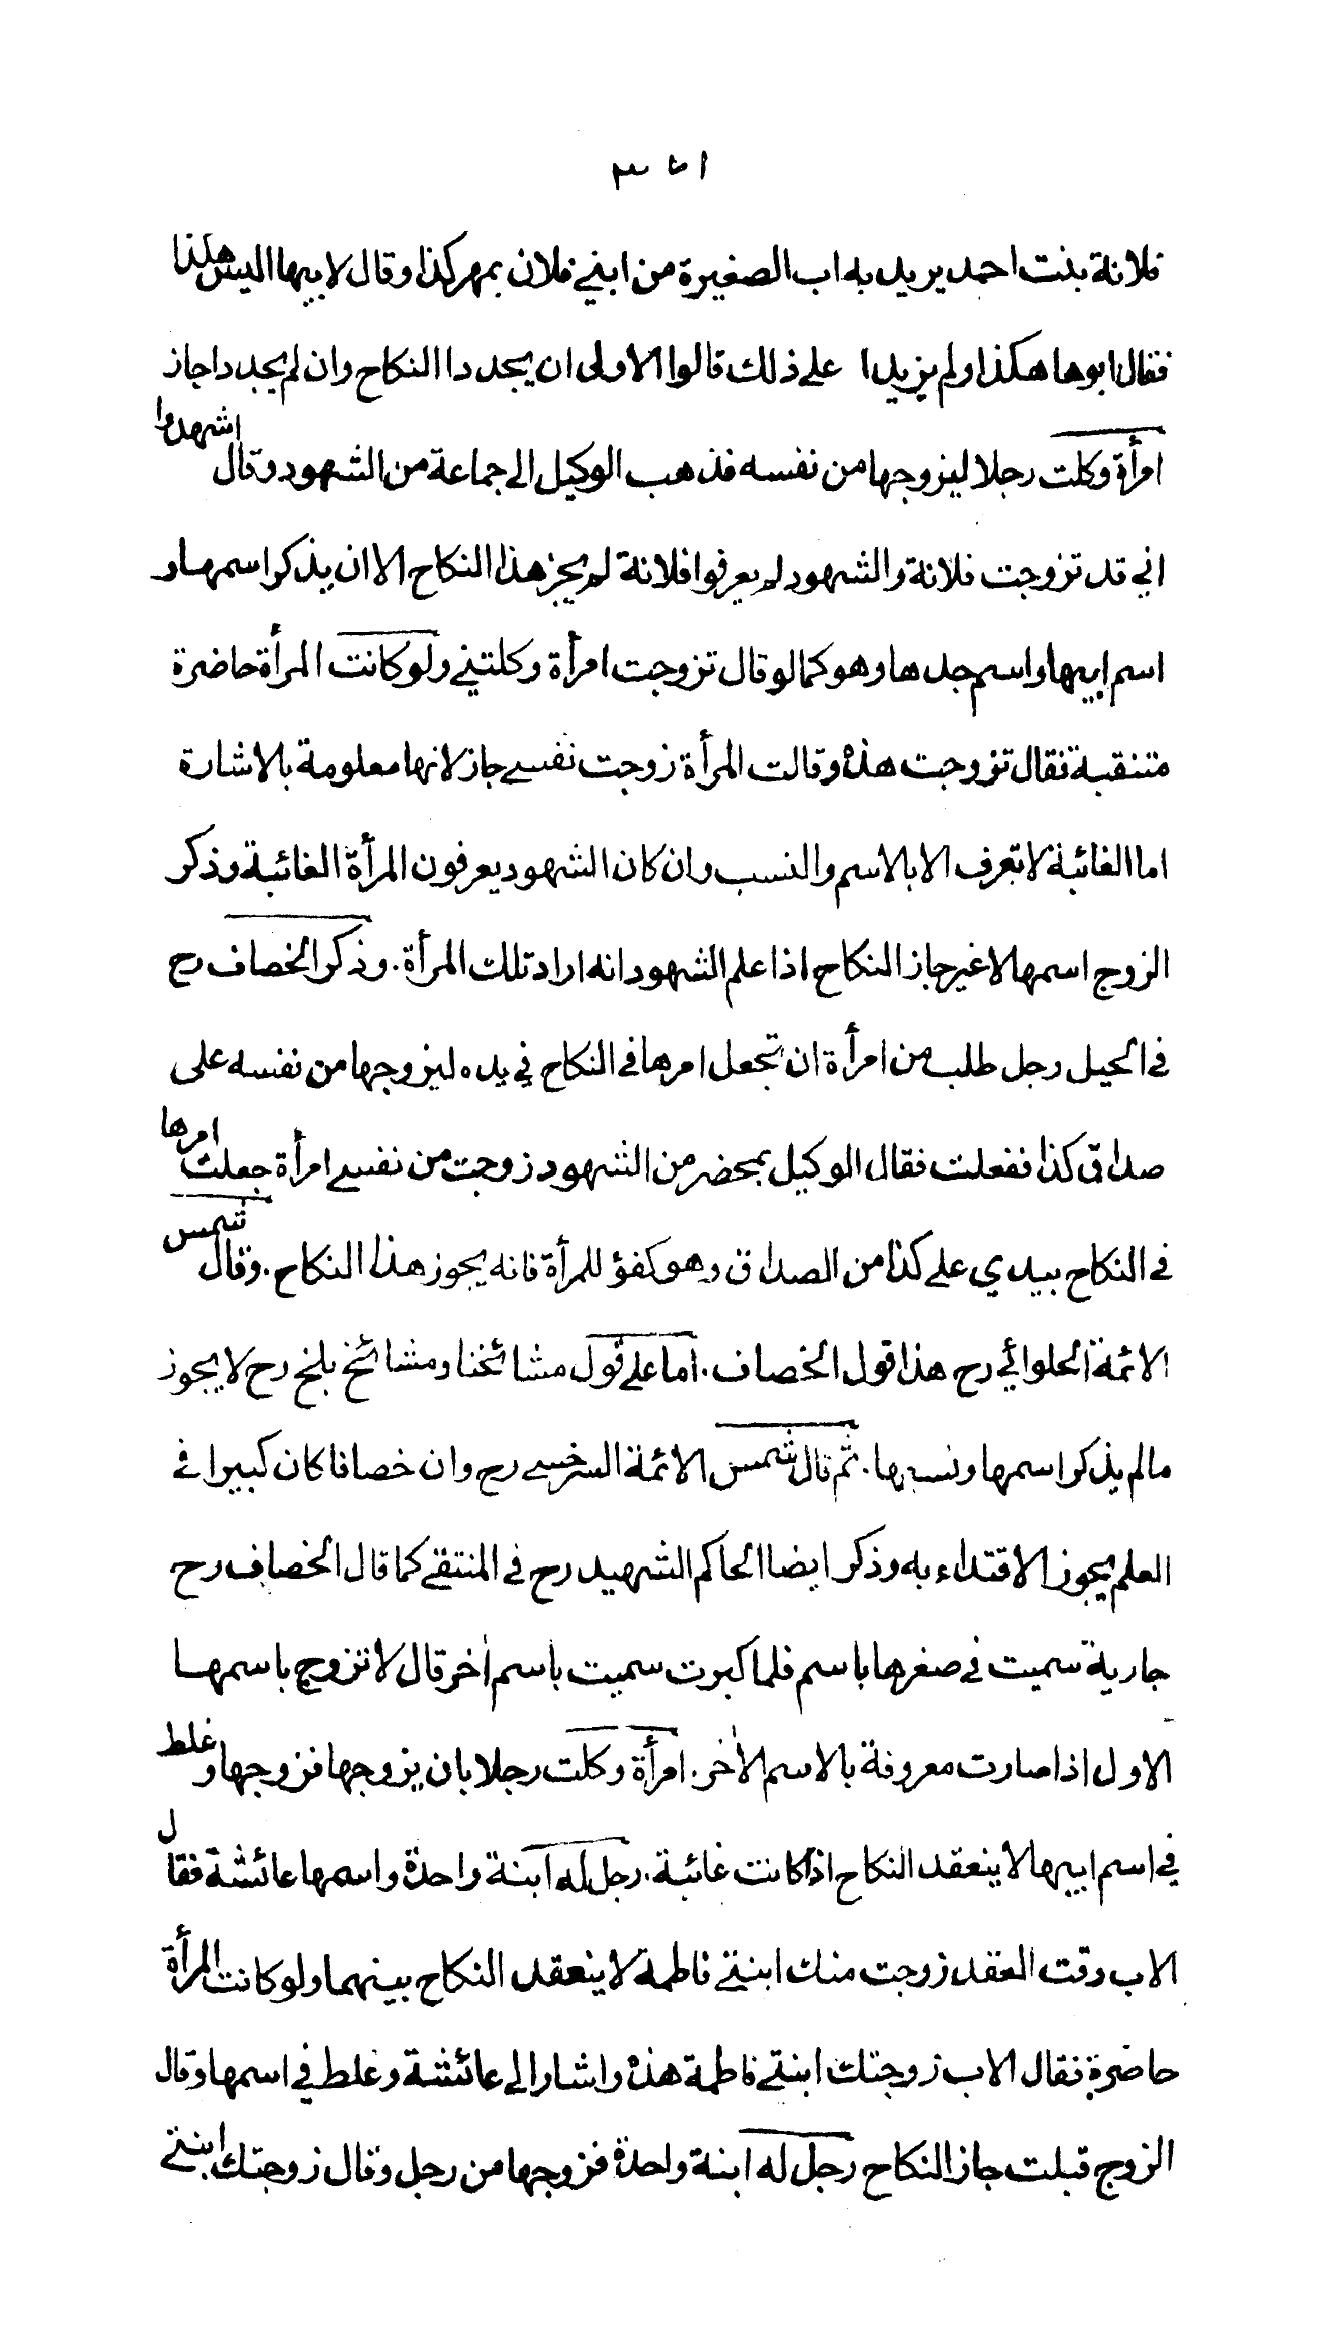 فلانة بنت احمد يريد به اب الصغيرة من ابني فلان بمهر كذا وقال لابيها اليس هكذا
فقال ابوها هكذا ولم يزيدا على ذلك قالوا الاولى ان يجددا النكاح وان لم يجددا جاز
امرأة وكلت رجلا ليزوجها من نفسه فذهب الوكيل الى جماعة من الشهود وقال اشهدوا
اني قد تزوجت فلانة والشهود لم يعرفوا فلانة لم يجز هذا النكاح الا ان يذكر اسمها و
اسم ابيها واسم جدها وهو كما لو قال تزوجت امرأة وكلتني ولو كانت المرأة حاضرة
متنقبة فقال تزوجت هذه وقالت المرأة زوجت نفسي جاز لانها معلومة بالاشارة
اما الغائبة لا تعرف الا بالاسم والنسب وان كان الشهود يعرفون المرأة الغائبة وذكر
الزوج اسمها لا غير جاز النكاح اذا علم الشهود انه اراد تلك المرأة. وذكر الخصاف رح
في الحيل رجل طلب من امرأة ان تجعل امرها في النكاح في يده ليزوجها من نفسه على
صداق كذا ففعلت فقال الوكيل بمحضر من الشهود زوجت من نفسي امرأة جعلت امرها
في النكاح بيدي على كذا من الصداق وهو كفؤ للمرأة فانه يجوز هذا النكاح. وقال شمس
الائمة الحلوائي رح هذا قول الخصاف. اما على قول مشائخنا ومشائخ بلخ رح لا يجوز
مالم يذكر اسمها ونسبها. ثم قال شمس الائمة السرخسي رح وان خصافا كان كبيرا في
العلم يجوز الاقتداء به وذكر ايضا الحاكم الشهيد رح في المنتقى كما قال الخصاف رح
جارية سميت في صغرها باسم فلما كبرت سميت باسم أخر قال لا تزوج باسمها
الاول اذا صارت معروفة بالاسم الأخر. امرأة وكلت رجلا بان يزوجها فزوجها وغلط
في اسم ابيها لا ينعقد النكاح اذا كانت غائبة. رجل له ابنة واحدة واسمها عائشة فقال
الاب وقت العقد زوجت منك ابنتي فاطمة لا ينعقد النكاح بينهما ولو كانت المرأة
حاضرة فقال الاب زوجتك ابنتي فاطمة هذه واشار الى عائشة وغلط في اسمها وقال
الزوج قبلت جاز النكاح رجل له ابنة واحدة فزوجها من رجل وقال زوجتك ابنتي